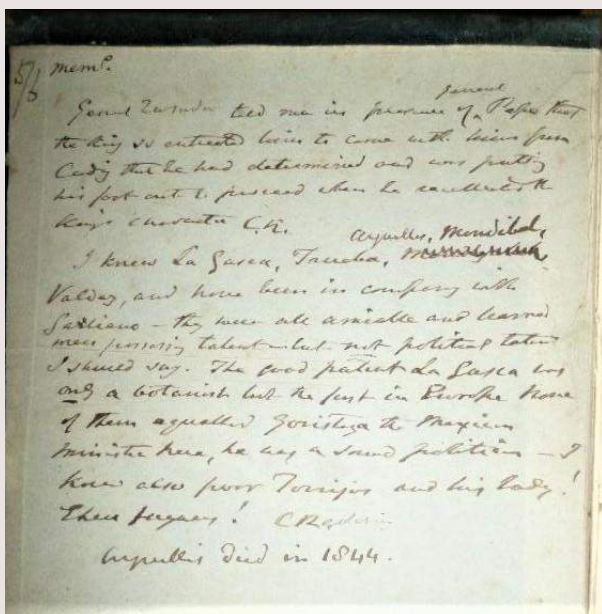 5/6 memo.
General told me in presence of General Pepe that
the King so entreated him to come with him from
Cadiz that he had determined and was putting
his foot out to proceed when he recollected the
King's character C.R.
I knew La Gasca, Trueba, Arguelles, Mendibel,
Valdez, and have been in company with
Galiano – they were all amiable and learned
men possessing talent – but not political talent
I should say. The good patient La Gasca was
only a botanist but the first in Europe None
of them equalled Gorostiza the Mexican
minister here, he was a sound politician – I
knew also poor Torrijos and his lady!
Eheu fugaces! C Redding
Arguellis died in 1844.